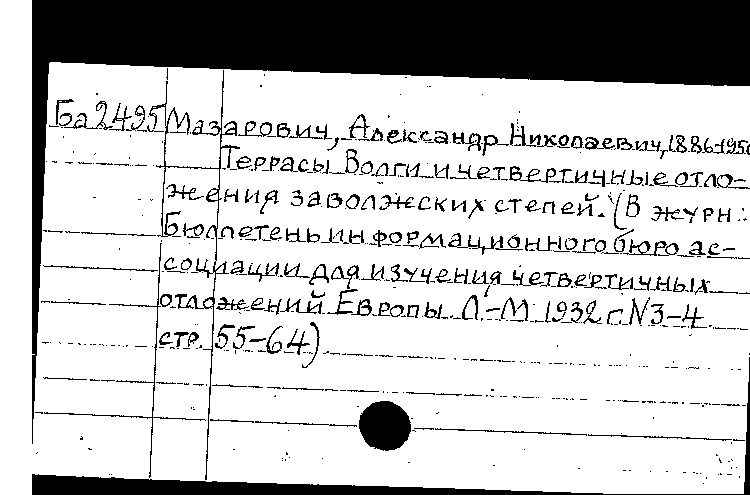 Ба 2495 Мазарович, Александр Николаевич, 1886-1950
Террасы Волги и четвертичные отло-
жения заволжских степей. (В журн:
Бюллетень информационного бюро ас-
социации для изучения четвертичных
отложений Европы. Л-М 1932 г. N3-4
стр. 55-64)